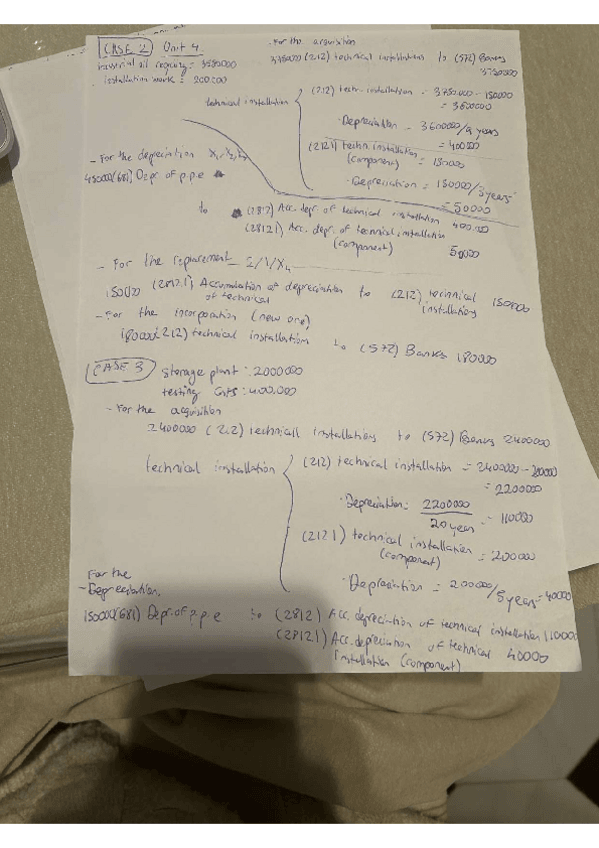 CASE 2 Unit 4
industrial oil refinery = 3550000
installation work = 200.000
- For the acquisition
3750000 (212) technical installations to (572) Banks 3750000
technical installation
(212) techn. installation = 3750.000 - 150000
= 3600000
· Depreciation = 3600000/9 years
= 400000
(2121) techn. installation = 150000
(component)
· Depreciation = 150000/3 years
= 50000
- For the depreciation X1, X2, X3
450000 (681) Depr. of p.p.e
to (2812) Acc. depr. of technical installation 400.000
(28121) Acc. depr. of technical installation 50000
(component)
- For the replacement 2/1/X4
150000 (28121) Accumulation of depreciation to (212) technical 150000
of technical installations
- For the incorporation (new one)
180000 (212) technical installations to (572) Banks 180000
CASE 3 storage plant : 2000000
testing costs : 400.000
- For the acquisition
2400000 (212) technical installations to (572) Banks 2400000
technical installation
(212) technical installation = 2400000 - 200000
= 2200000
· Depreciation: 2200000 / 20 years = 110000
(2121) technical installation = 200000
(component)
· Depreciation = 200000/5 years = 40000
For the
- Depreciation,
150000 (681) Depr. of p.p.e to (2812) Acc. depreciation of technical installation 110000
(28121) Acc. depreciation of technical 40000
installation (component)